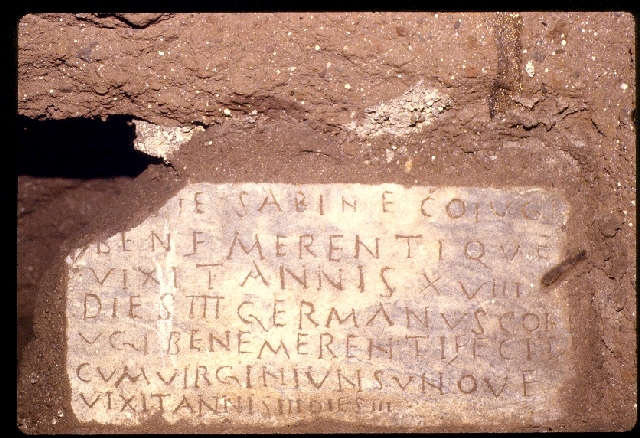 IE SABINE COIVG
BENE MERENTI QVE
VIXIT ANNIS XVIII
DIES III GERMANVS COI
VGI BENEMERENTI FECIT
CVM VIRGINIVN SVN QVE
VIXIT ANNIS III DIES III